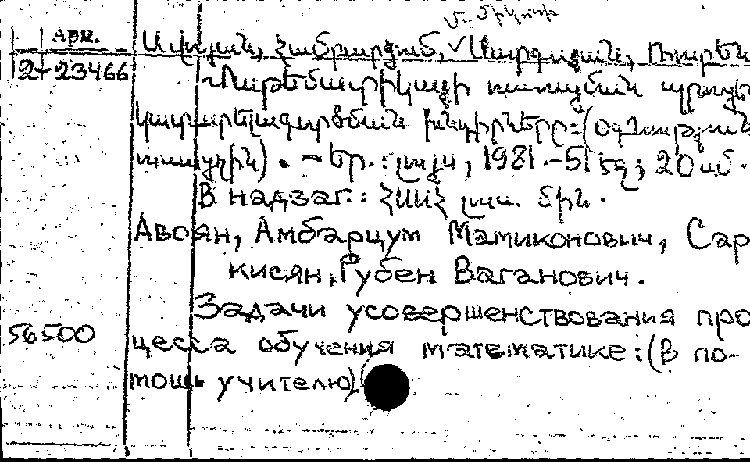 Մ. Միկոնի
Арм.
Ավոյան, Համբարձում, Սարգսյան, Ռուբեն
2-23466
Մաթեմատիկայի ուսուցման պրոցեսի
կատարելագործման խնդիրները: (Օգնություն
ուսուցչին). - Եր.: Լույս, 1981.-51 էջ; 20 սմ.
В надзаг.: ՀՍՍՀ լուս. մին.
Авоян, Амбарцум Мамиконович, Сар
кисян, Рубен Ваганович.
Задачи усовершенствования про
56500
цесса обучения математике: (В по-
мощь учителю)